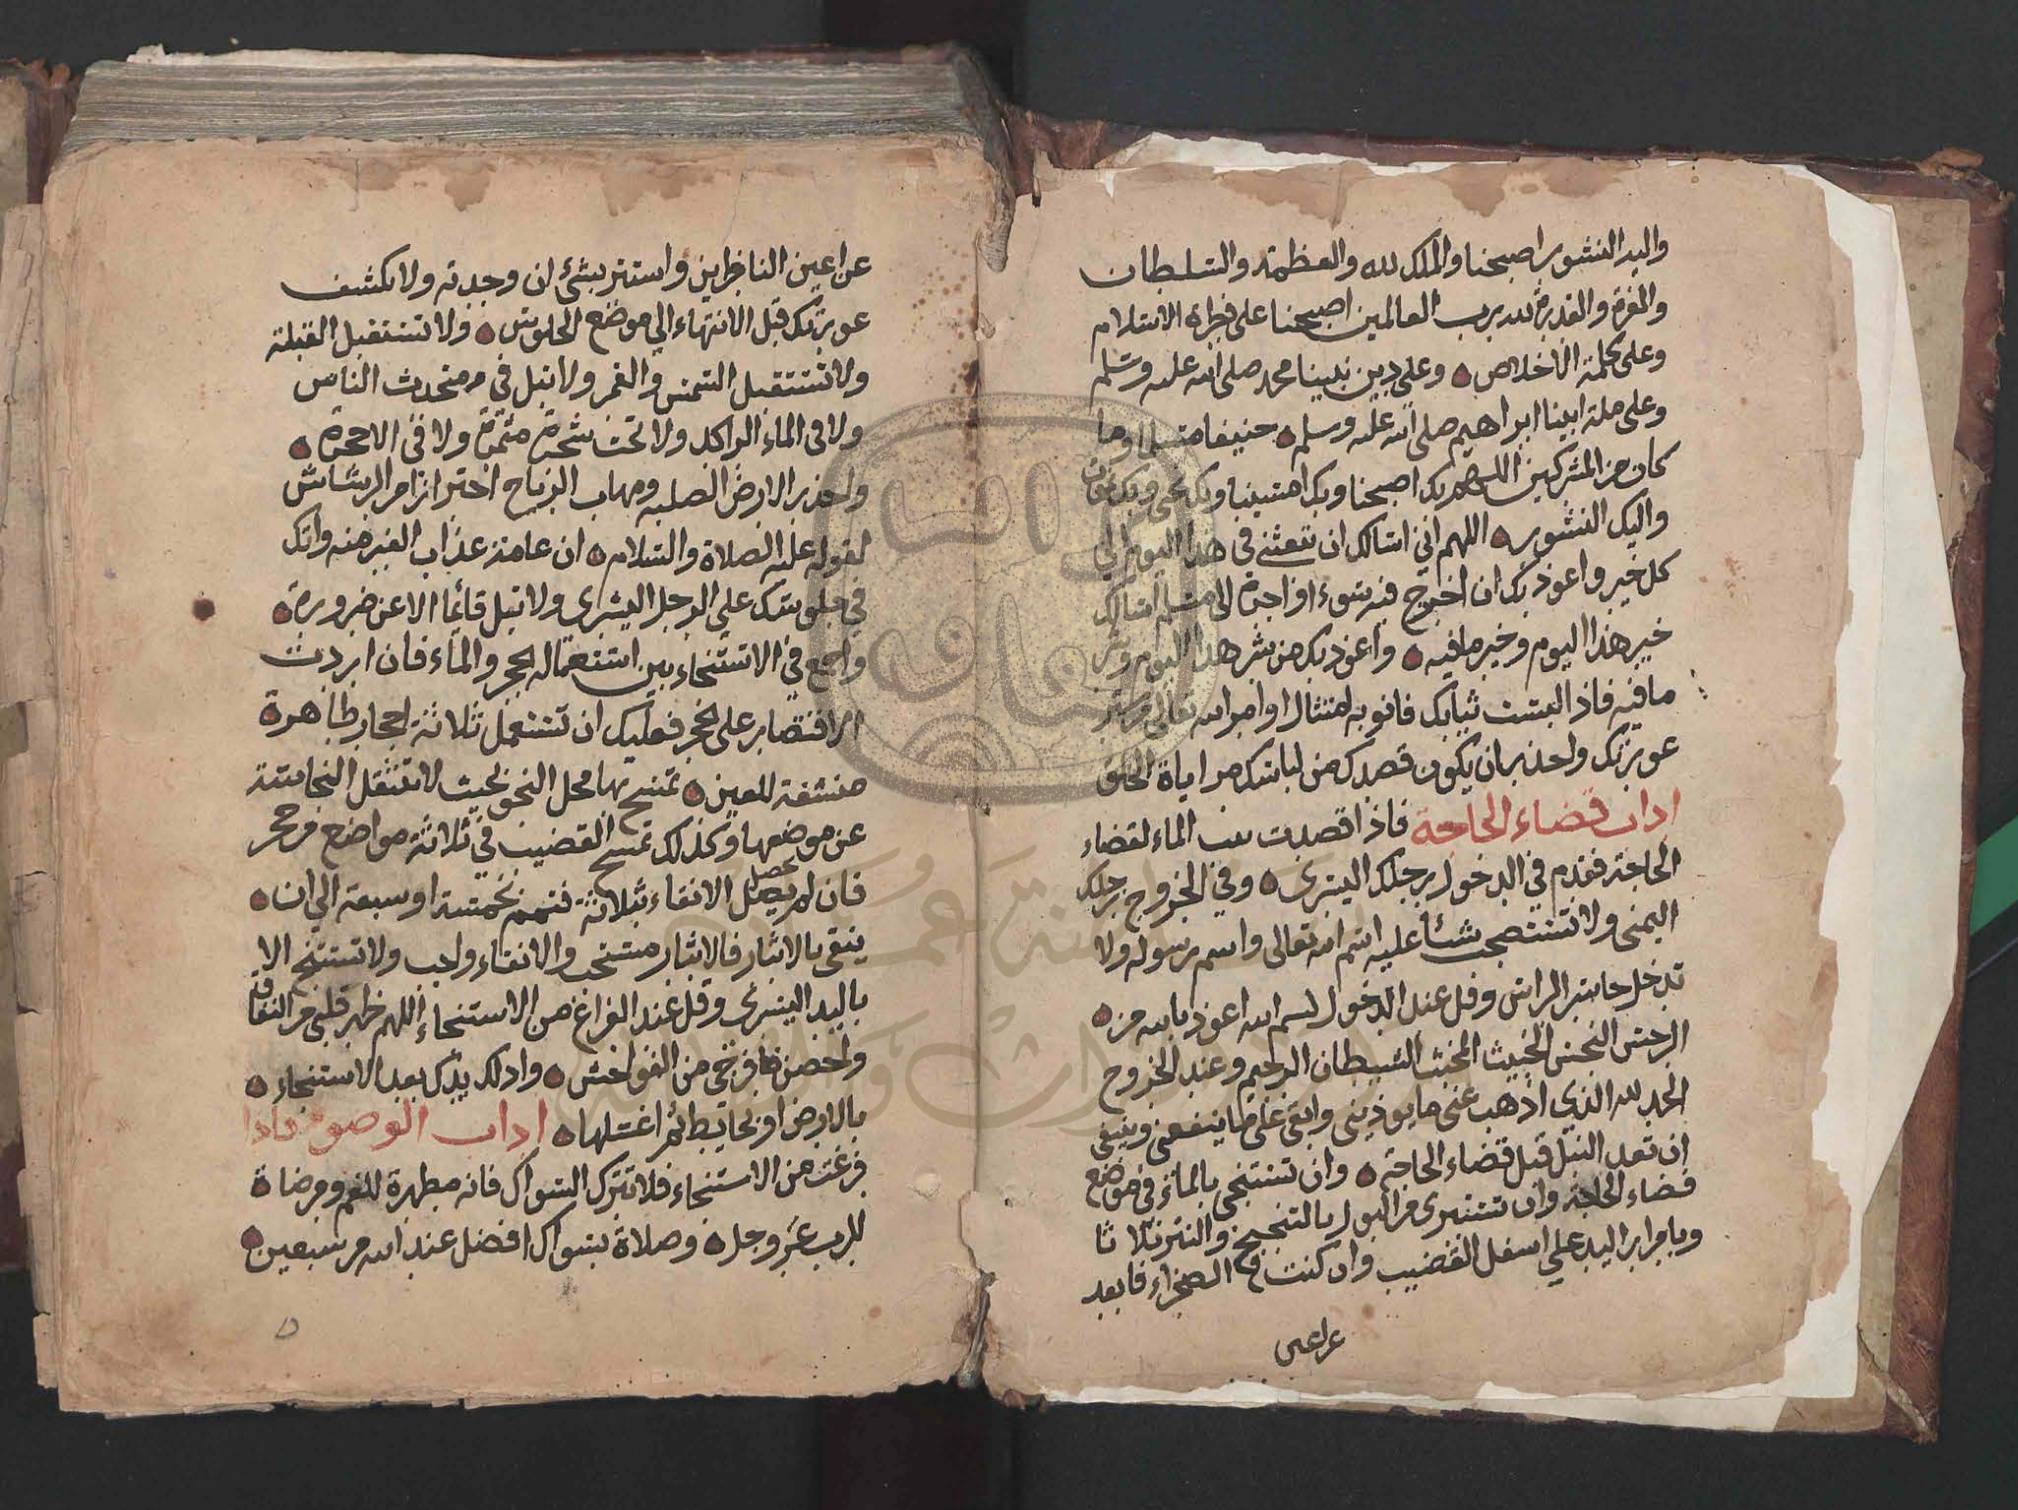 واليه النشور اصبحنا والملك لله والعظمة والسلطان
والعزة والقدرة لله رب العالمين اصبحنا على فطرة الاسلام
وعلى كلمة الاخلاص وعلى دين نبينا محمد صلى الله عليه وسلم
وعلى ملة ابينا ابراهيم صلى الله عليه وسلم حنيفا مسلما وما
كان من المشركين اللهم بك اصبحنا وبك امسينا وبك نحيى وبك نموت
واليك النشور اللهم اني اسالك ان تبعثني في هذا اليوم الى
كل خير واعوذ بك ان اجترح فيه سوء او اجره الى مسلم اسالك
خير هذا اليوم وخير مافيه واعوذ بك من شر هذا اليوم وشر
ما فيه فاذا لبست ثيابك فانو به امتثال اوامر الله تعالى في ستر
عورتك واحذر ان يكون قصدك من لباسك مراياة الخلق
اداب قضاء الحاجة فاذا قصدت بيت الماء لقضاء
الحاجة فقدم في الدخول رجلك اليسرى وفي الخروج رجلك
اليمنى ولا تستصحب شيأ عليه اسم الله تعالى واسم رسوله ولا
تدخل حاسر الراس وقل عند الدخول بسم الله اعوذ بالله من
الرجس النجس الخبيث المخبث الشيطان الرجيم وعند الخروج
الحمد لله الذي اذهب عني مايوذيني وابقى علي ما ينفعني وينبغي
ان تعد النبل قبل قضاء الحاجة وان تستنجي بالماء في موضع
قضاء الحاجة وان تستبري من البول بالتنحنح والنتر ثلاثا
وبامرار اليد على اسفل القضيب وان كنت في الصحراء فابعد
عن اعين
عن اعين الناظرين واستتر بشئ ان وجدته ولا تكشف
عورتك قبل الانتهاء الى موضع الجلوس ولا تستقبل القبلة
ولا تستقبل الشمس والقمر ولا تبل في متحدث الناس
ولا في الماء الراكد ولا تحت شجرة مثمرة ولا في الاحجرة
واحذر الارض الصلبه ومهاب الرياح احترازا من الرشاش
لقوله عليه الصلاة والسلام ان عامة عذاب القبر منه واتك
في جلوسك على الرجل اليسرى ولا تبل قائما الا عن ضرورة
واجمع في الاستنجاء بين استعمال الحجر والماء فان اردت
الاقتصار على الحجر فعليك ان تستعمل ثلاثة احجار طاهرة
منشفة للعين تمسح بها محل النجو بحيث لا تنتقل النجاسة
عن موضعها وكذلك تمسح القضيب في ثلاثة مواضع من حجر
فان لم يحصل الانقاء بثلاثة فتمم بخمسة او سبعة الى ان
ينقى بالايتار فالايتار مستحب والانقاء واجب ولا تستنج الا
باليد اليسرى وقل عند الفراغ من الاستنجاء اللهم طهر قلبي من النفاق
واحصن فرجي من الفواحش وادلك يدك بعد الاستنجاء
بالارض او بحايط ثم اغسلها اداب الوضوء فاذا
فرغت من الاستنجاء فلا تترك السواك فانه مطهرة للفم ومرضاة
للرب عز وجل وصلاة بسواك افضل عند الله من سبعين